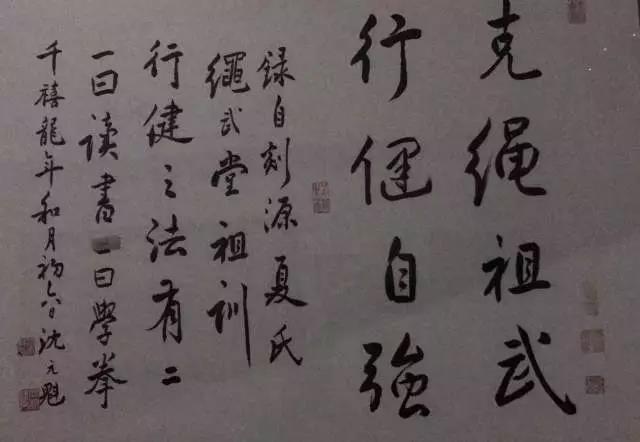 克绳祖武
行健自強
録自刻源夏氏
繩武堂祖训
行健之法有二
一曰读書一曰學拳
千禧龍年和月初六日沈元魁